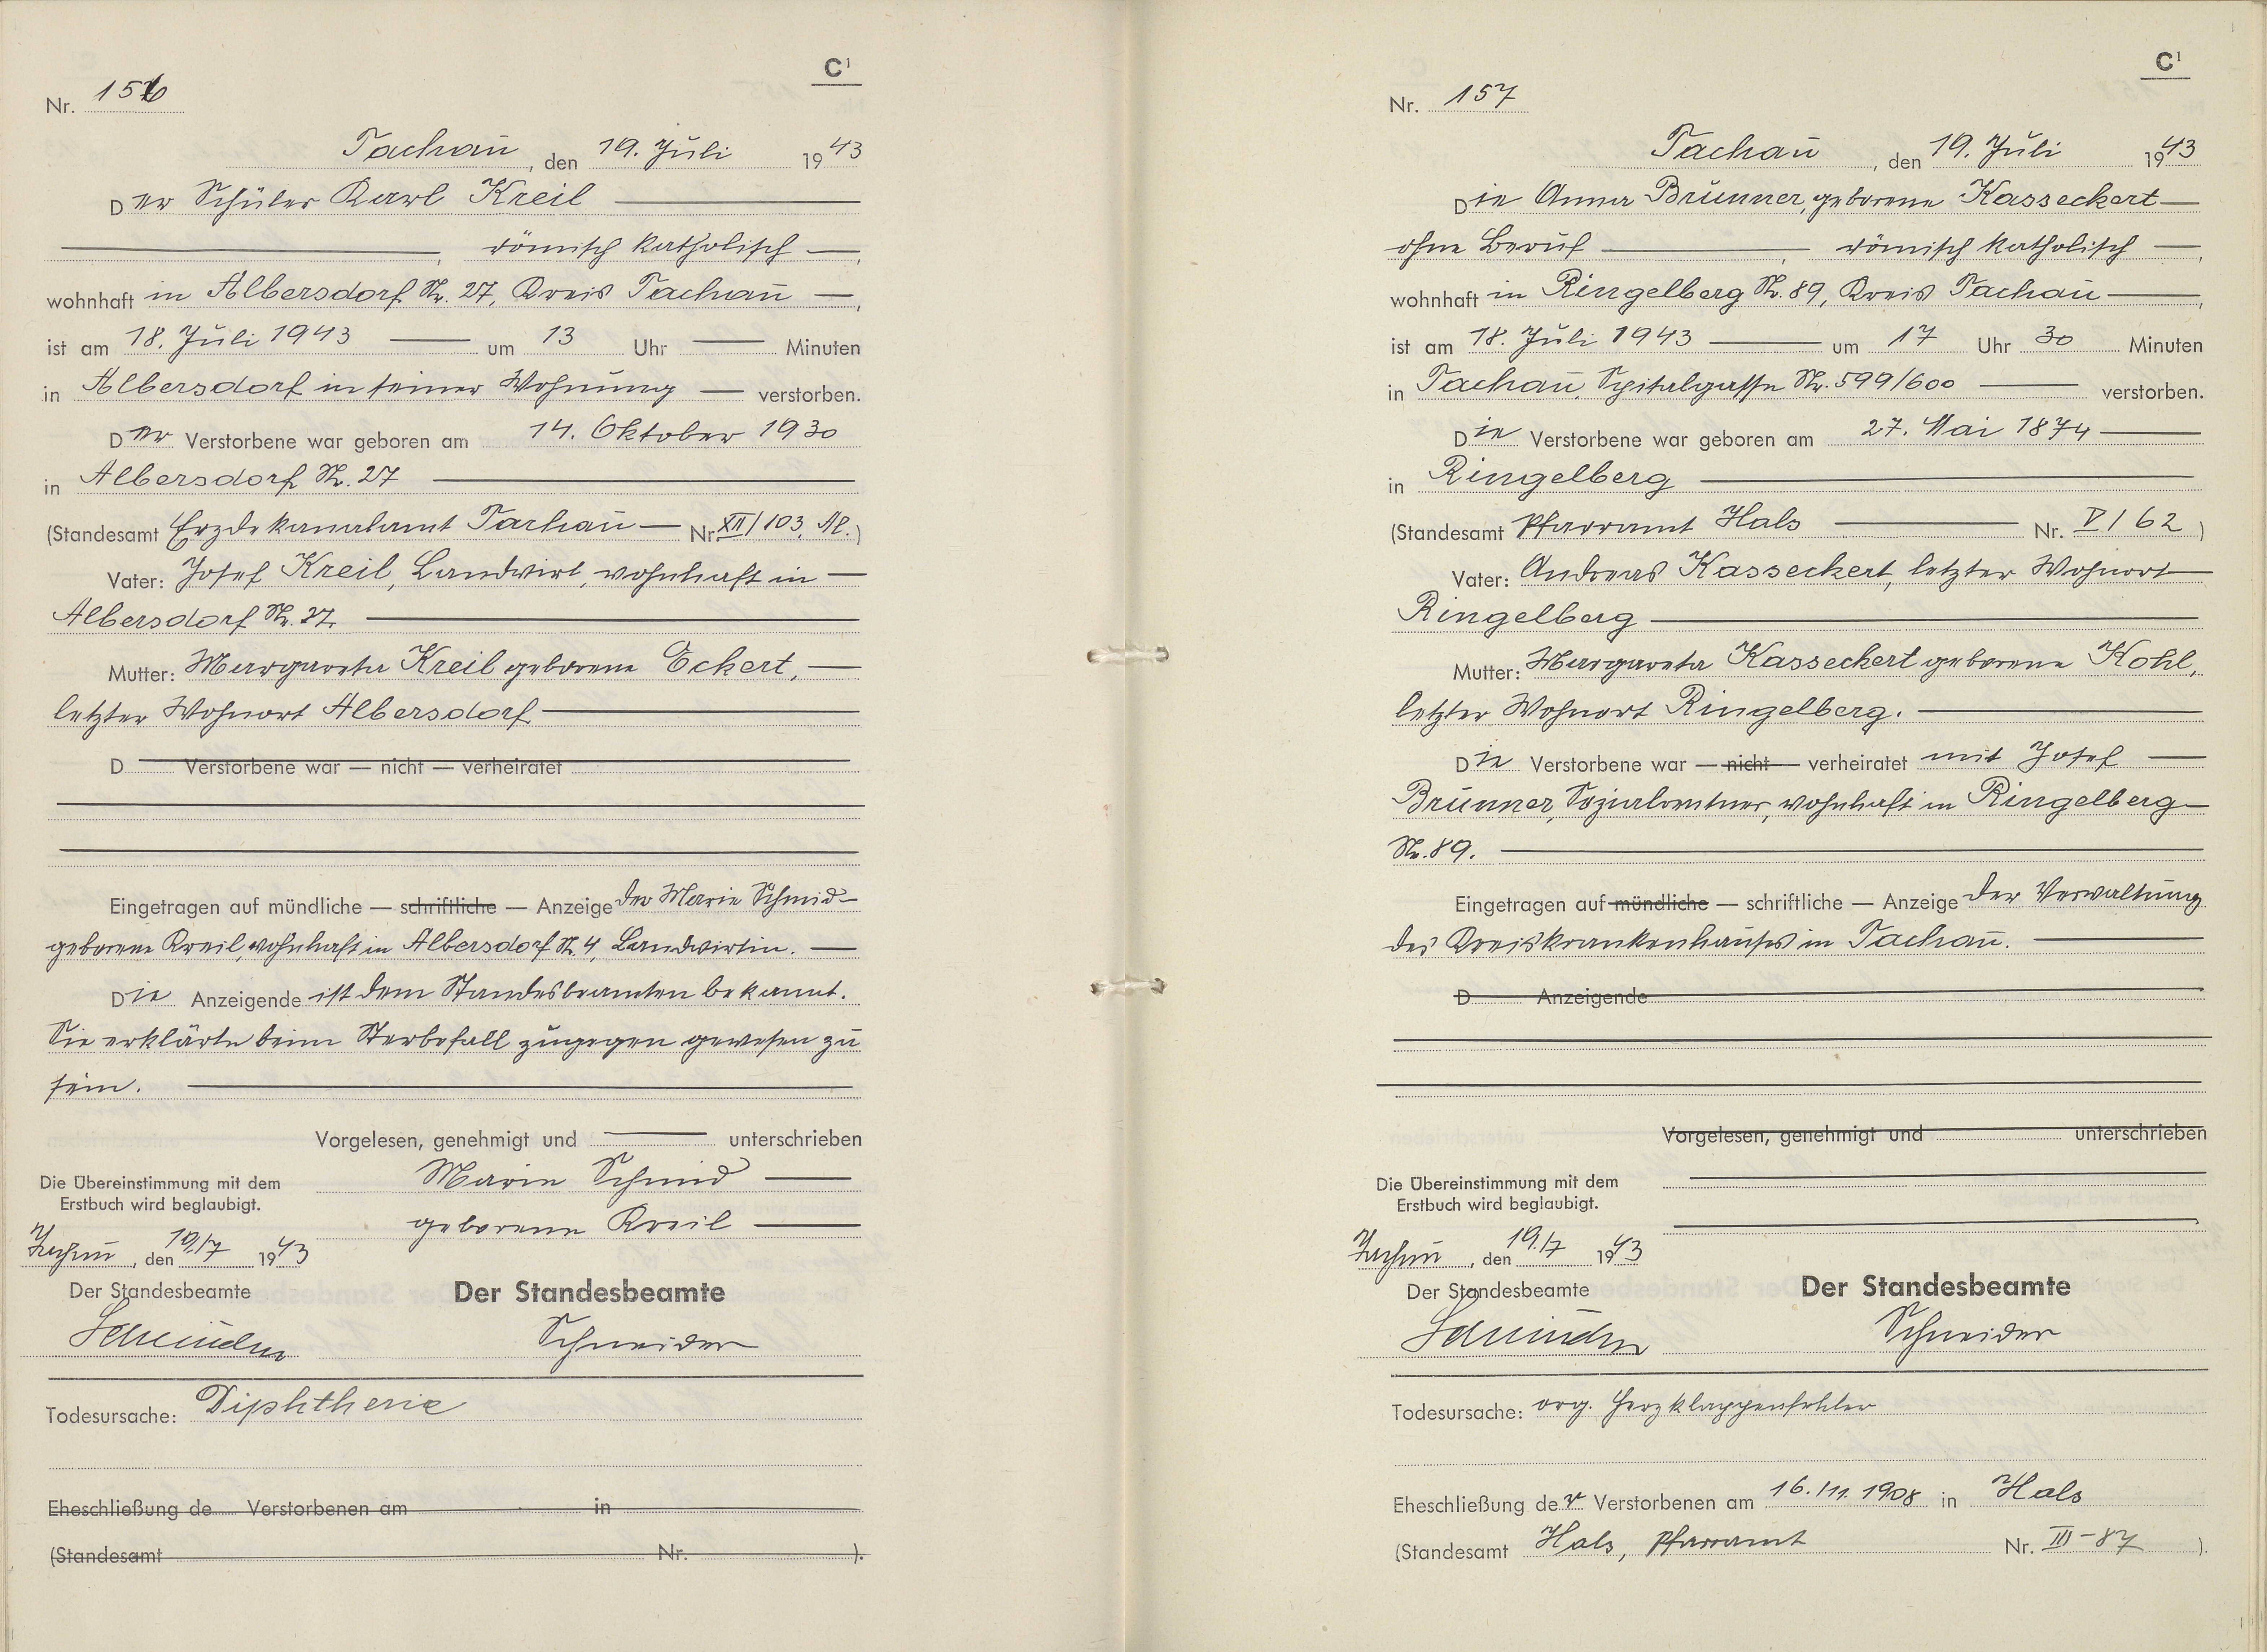 C¹
Nr. 156
Tachau, den 19. Juli 1943
Der Schüler Karl Kreil
, römisch katholisch,
wohnhaft in Albersdorf Nr. 27, Kreis Tachau,
ist am 18. Juli 1943 um 13 Uhr Minuten
in Albersdorf in seiner Wohnung verstorben.
Der Verstorbene war geboren am 14. Oktober 1930
in Albersdorf Nr. 27
(Standesamt Erzdekanalamt Tachau Nr. XII/103, Al.)
Vater: Josef Kreil, Landwirt, wohnhaft in
Albersdorf Nr. 27.
Mutter: Margareta Kreil geborene Eckert,
letzter Wohnort Albersdorf
D Verstorbene war — nicht — verheiratet
Eingetragen auf mündliche — schriftliche — Anzeige der Marie Schmid
geborene Kreil, wohnhaft in Albersdorf Nr. 4, Landwirtin.
Die Anzeigende ist dem Standesbeamten bekannt.
Sie erklärte beim Sterbefall zugegen gewesen zu
sein.
Vorgelesen, genehmigt und unterschrieben
Marie Schmid
geborene Kreil
Die Übereinstimmung mit dem
Erstbuch wird beglaubigt.
Tachau, den 19./7 1943
Der Standesbeamte
Schneider
Der Standesbeamte
Schneider
Todesursache: Diphtherie
Eheschließung de Verstorbenen am in
(Standesamt Nr. ).
C¹
Nr. 157
Tachau, den 19. Juli 1943
Die Anna Brunner, geborene Kasseckert
ohne Beruf, römisch katholisch,
wohnhaft in Ringelberg Nr. 89, Kreis Tachau,
ist am 18. Juli 1943 um 17 Uhr 30 Minuten
in Tachau, Spitalgasse Nr. 599/600 verstorben.
Die Verstorbene war geboren am 27. Mai 1874
in Ringelberg
(Standesamt Pfarramt Hals Nr. V/62)
Vater: Andreas Kasseckert, letzter Wohnort
Ringelberg
Mutter: Margareta Kasseckert geborene Kohl,
letzter Wohnort Ringelberg.
Die Verstorbene war — nicht — verheiratet mit Josef
Brunner, Sozialrentner, wohnhaft in Ringelberg
Nr. 89.
Eingetragen auf mündliche — schriftliche — Anzeige der Verwaltung
des Kreiskrankenhauses in Tachau.
D Anzeigende
Vorgelesen, genehmigt und unterschrieben
Die Übereinstimmung mit dem
Erstbuch wird beglaubigt.
Tachau, den 19./7 1943
Der Standesbeamte
Schneider
Der Standesbeamte
Schneider
Todesursache: org. Herzklappenfehler
Eheschließung der Verstorbenen am 16./11. 1908 in Hals
(Standesamt Hals, Pfarramt Nr. III-87 ).